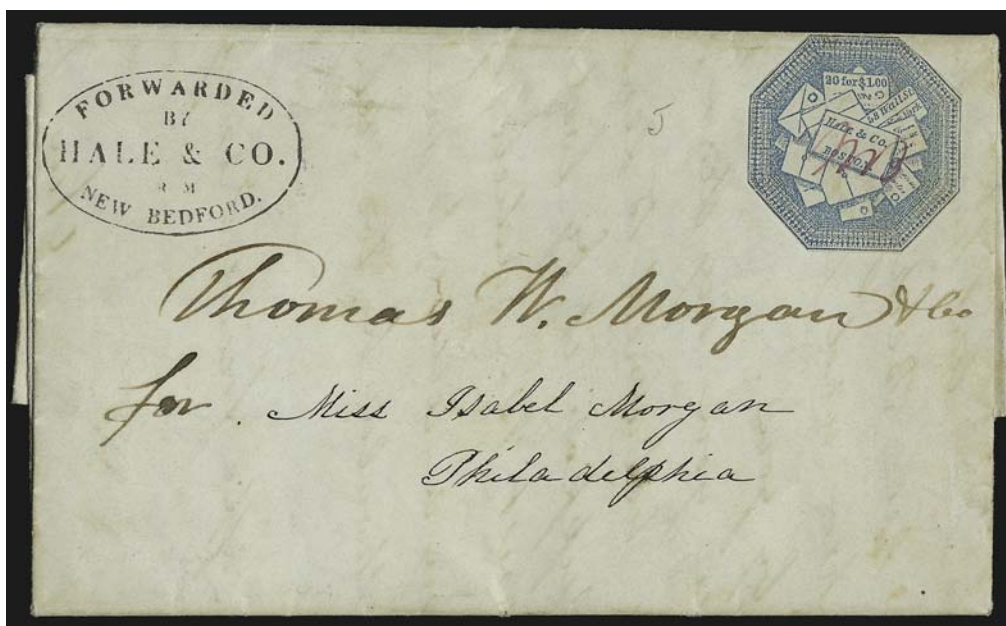 FORWARDED
BY
HALE & CO.
R M
NEW BEDFORD.
5
20 for $1.00
58 Wall St.
York
HALE & Co.
BOSTON.
Thomas W. Morgan & Co
for Miss Isabel Morgan
Philadelphia